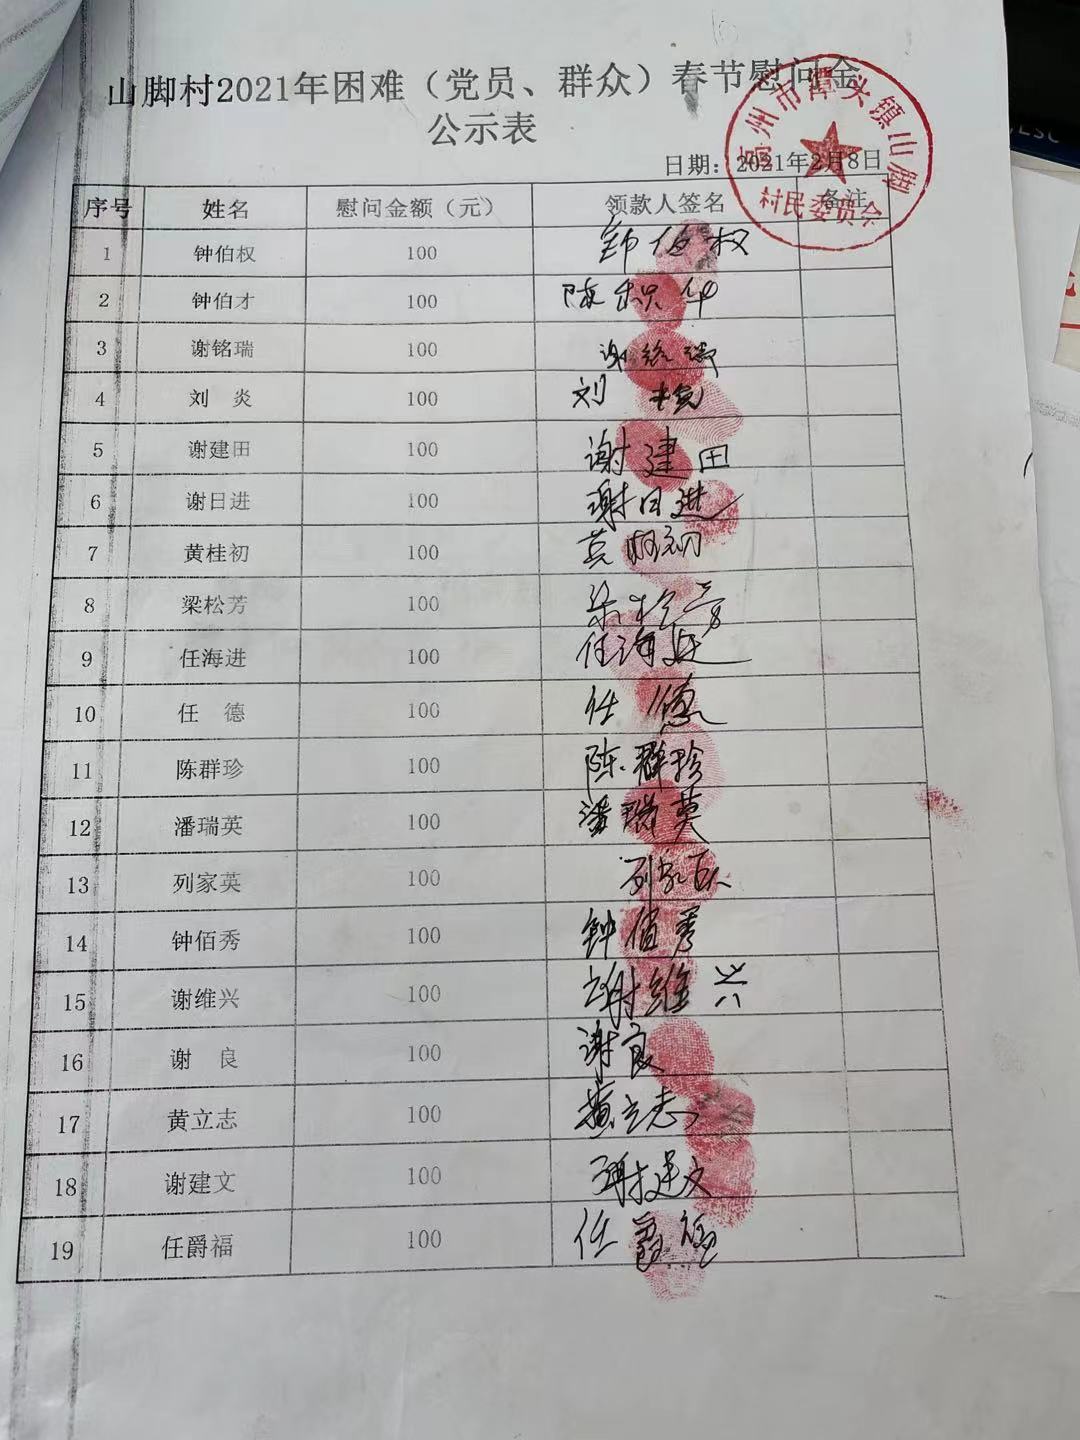 山脚村2021年困难（党员、群众）春节慰问金
公示表
日期：2021年2月8日
高州市潭头镇山脚
村民委员会
序号 姓名 慰问金额（元） 领款人签名 备注
1 钟伯权 100 钟伯权
2 钟伯才 100
3 谢铭瑞 100 谢铭瑞
4 刘 炎 100 刘
5 谢建田 100 谢建田
6 谢日进 100 谢日进
7 黄桂初 100 黄桂初
8 梁松芳 100 梁松芳
9 任海进 100 任海进
10 任 德 100 任德
11 陈群珍 100 陈群珍
12 潘瑞英 100 潘瑞英
13 列家英 100 列家
14 钟佰秀 100 钟佰秀
15 谢维兴 100 谢维兴
16 谢 良 100 谢良
17 黄立志 100 黄立志
18 谢建文 100 谢建文
19 任爵福 100 任爵福